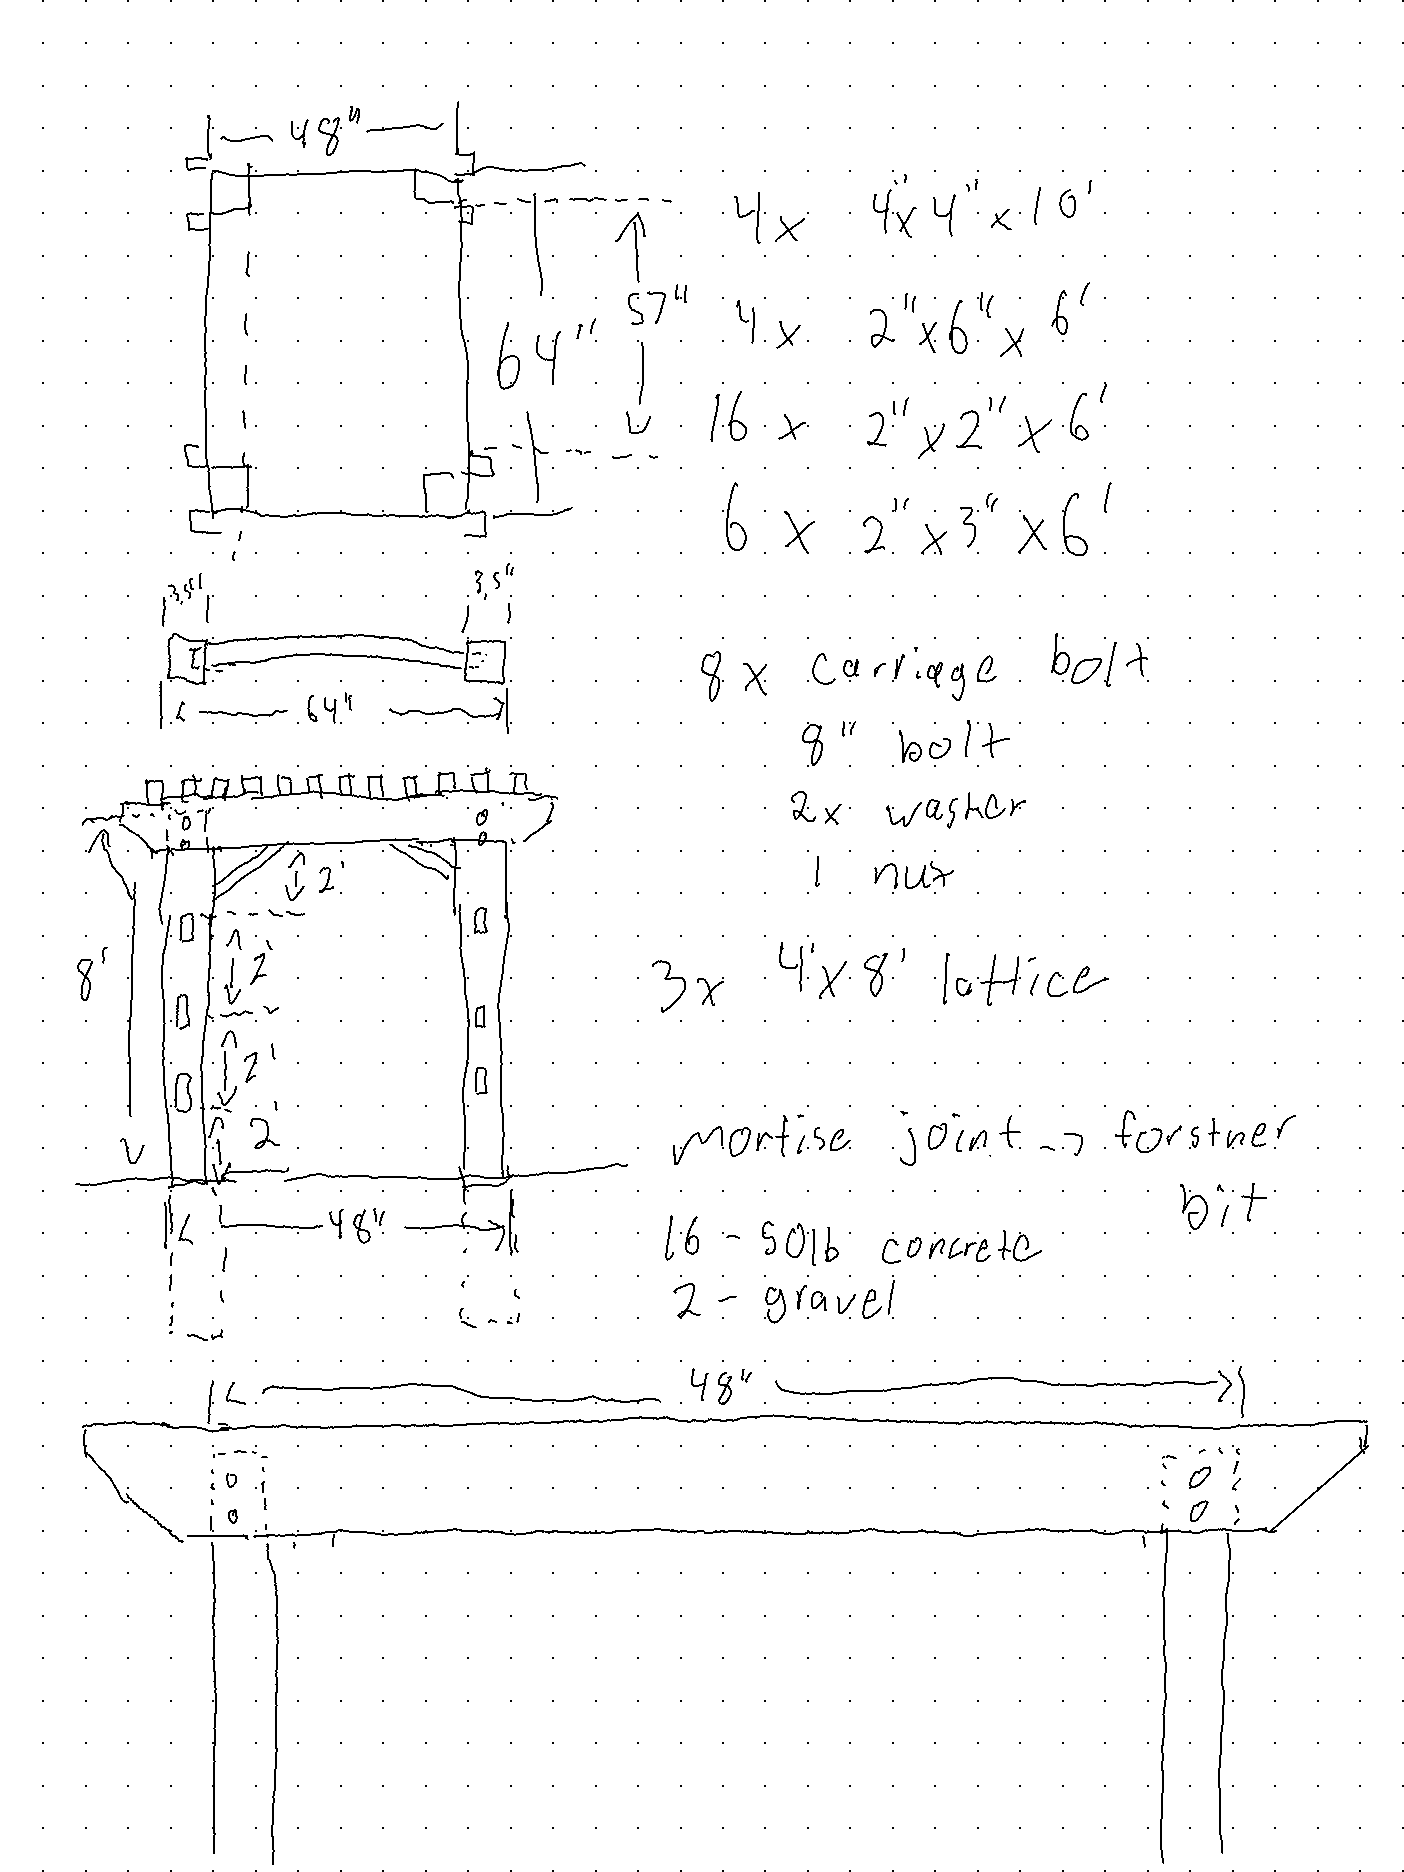 48"
4x 4"x4"x10'
57"
64"
4x 2"x6"x6'
16x 2"x2"x6'
6x 2"x3"x6'
3.5" 3.5"
8x carriage bolt
64"
8" bolt
2x washer
1 nut
2'
8'
2'
3x 4'x8' lattice
2'
2'
mortise joint -> forstner
bit
48"
16 - 50lb concrete
2 - gravel
48"